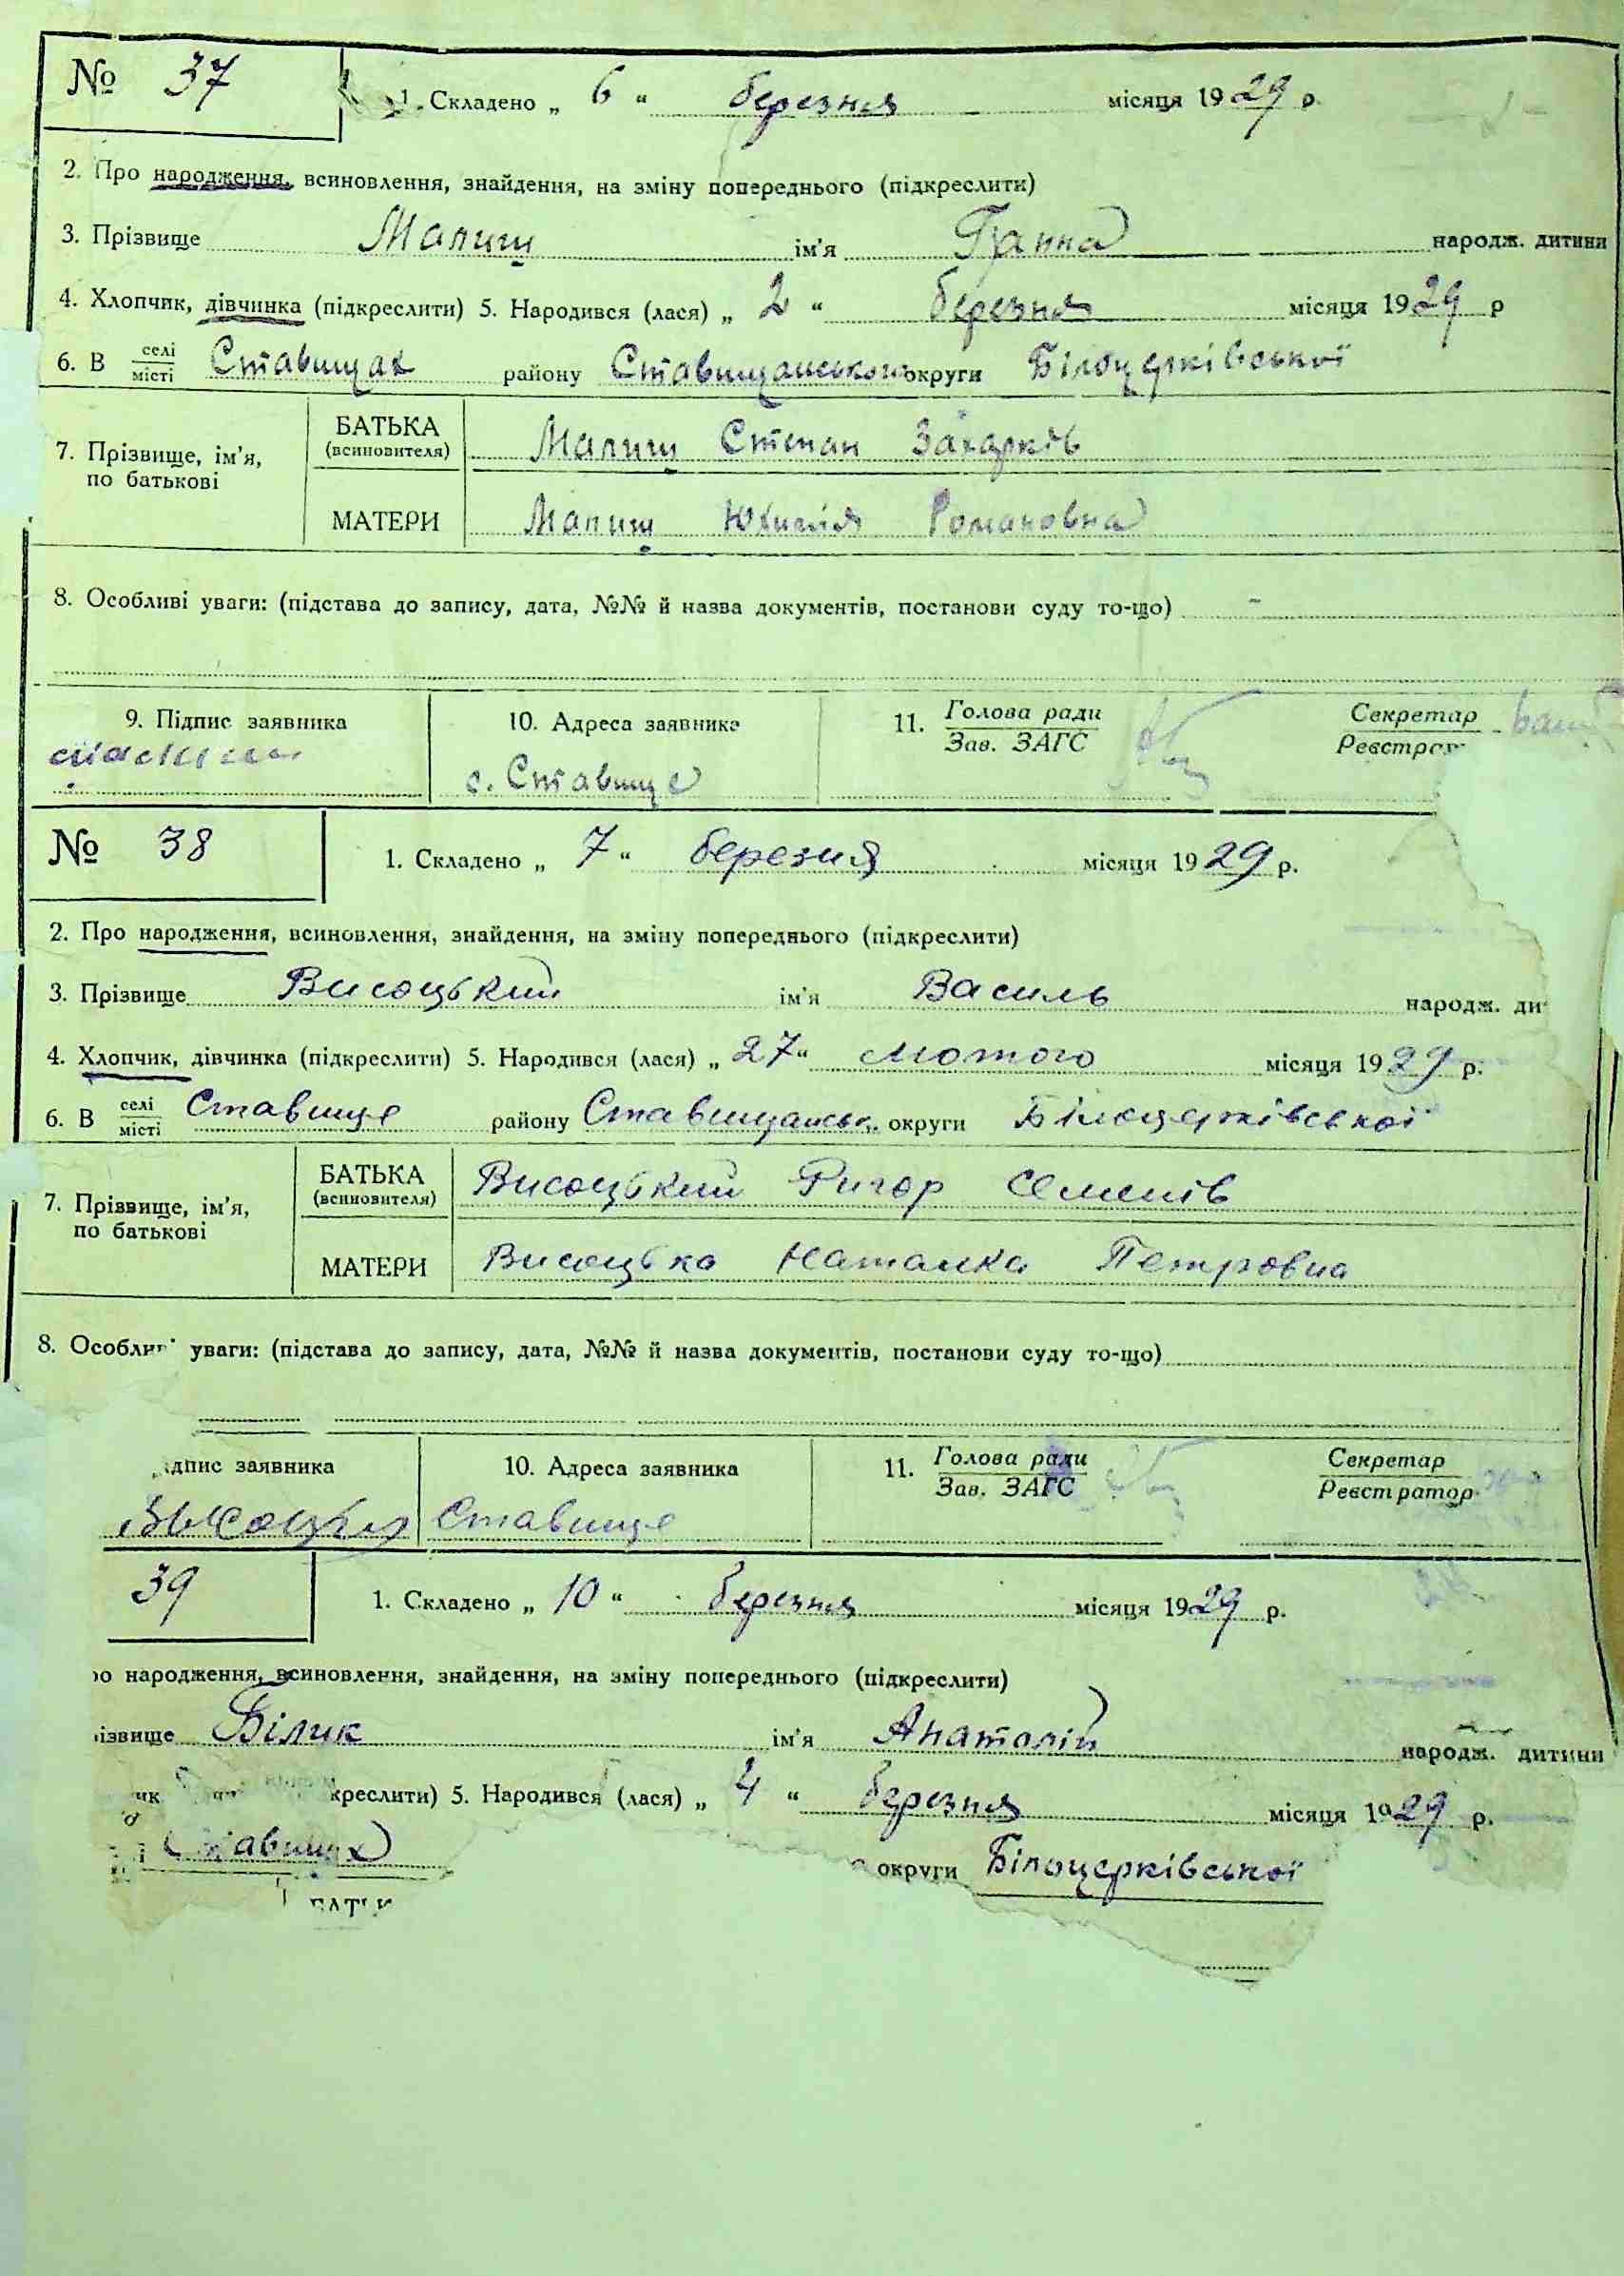 № 37
1. Складено „ 6 “ березня місяця 1929 р.
2. Про народження, всиновлення, знайдення, на зміну попереднього (підкреслити)
3. Прізвище Малиш ім'я Ганна народж. дитини
4. Хлопчик, дівчинка (підкреслити) 5. Народився (лася) „ 2 “ березня місяця 1929 р
6. В селі місті Ставищах району Ставищанського округи Білоцерківської
7. Прізвище, ім'я, по батькові
БАТЬКА (всиновителя) Малиш Степан Захарків
МАТЕРИ Малиш Юхимія Романовна
8. Особливі уваги: (підстава до запису, дата, №№ й назва документів, постанови суду то-що) -
9. Підпис заявника 10. Адреса заявника 11. Голова ради Зав. ЗАГС Секретар
с. Ставище
№ 38
1. Складено „ 7 “ березня місяця 1929 р.
2. Про народження, всиновлення, знайдення, на зміну попереднього (підкреслити)
3. Прізвище Висоцький ім'я Василь народж. ди
4. Хлопчик, дівчинка (підкреслити) 5. Народився (лася) „ 27 “ лютого місяця 1929 р.
6. В селі місті Ставище району Ставищанськ. округи Білоцерківської
7. Прізвище, ім'я, по батькові
БАТЬКА (всиновителя) Висоцький Григор Семенів
МАТЕРИ Висоцька Наталка Петровна
8. уваги: (підстава до запису, дата, №№ й назва документів, постанови суду то-що)
дпис заявника 10. Адреса заявника 11. Голова ради Зав. ЗАГС Секретар Реєстратор
Ставище
39
1. Складено „ 10 “ березня місяця 1929 р.
ро народження, всиновлення, знайдення, на зміну попереднього (підкреслити)
ізвище Білик ім'я Анатолій народж. дитини
креслити) 5. Народився (лася) „ 4 “ березня місяця 1929 р.
округи Білоцерківської